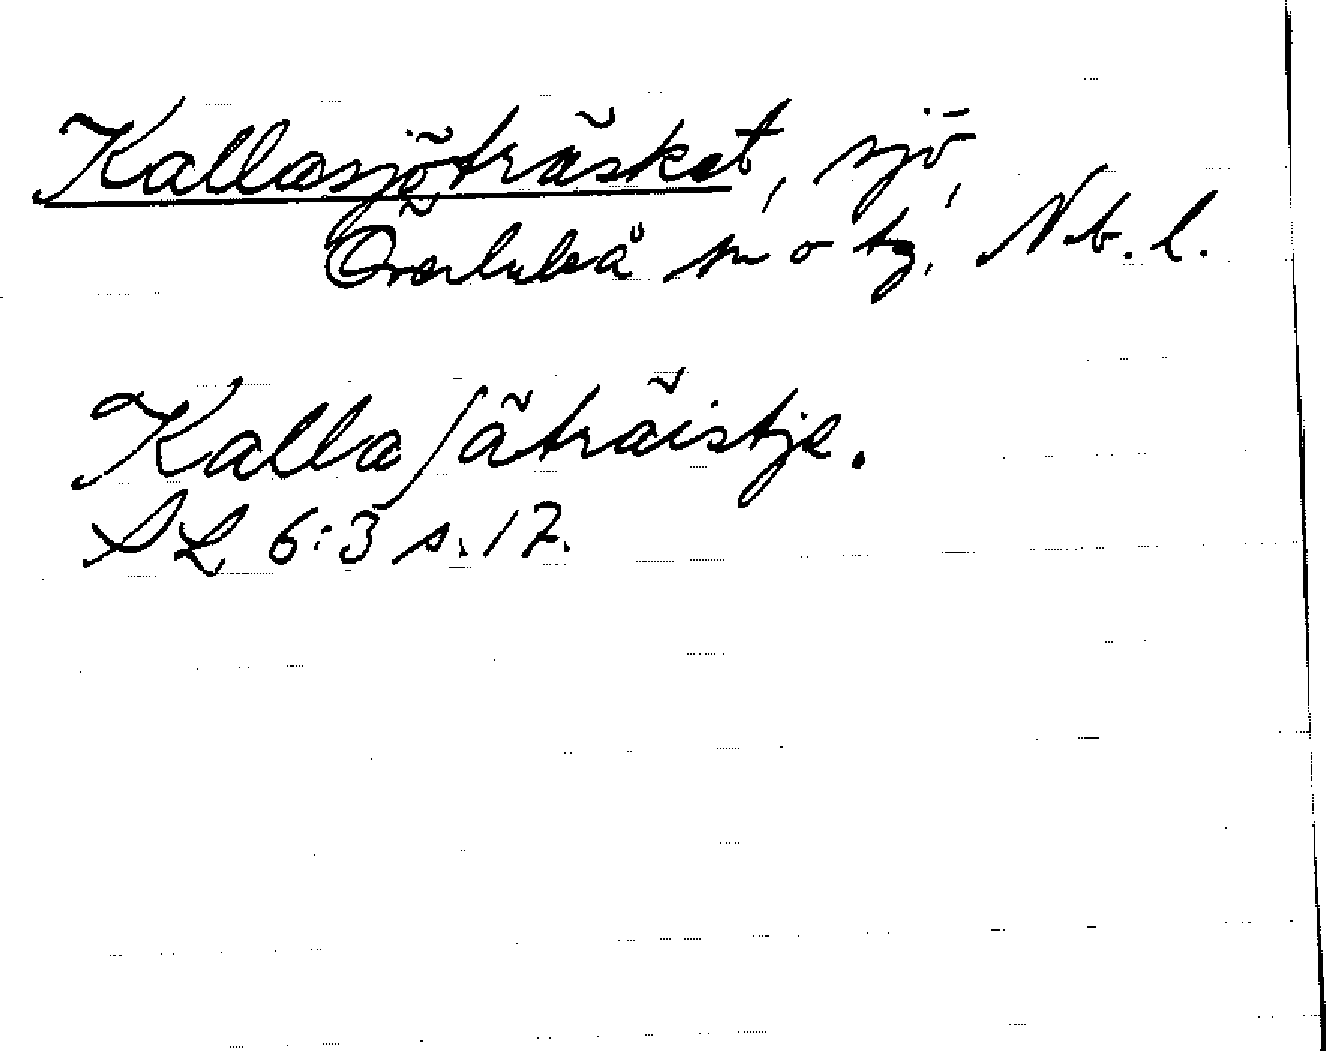 Kallasjöträsket, sjö,
Överluleå sn o tg, Nb. l.
Kallaʃäträistje.
SL 6:3 s. 17.